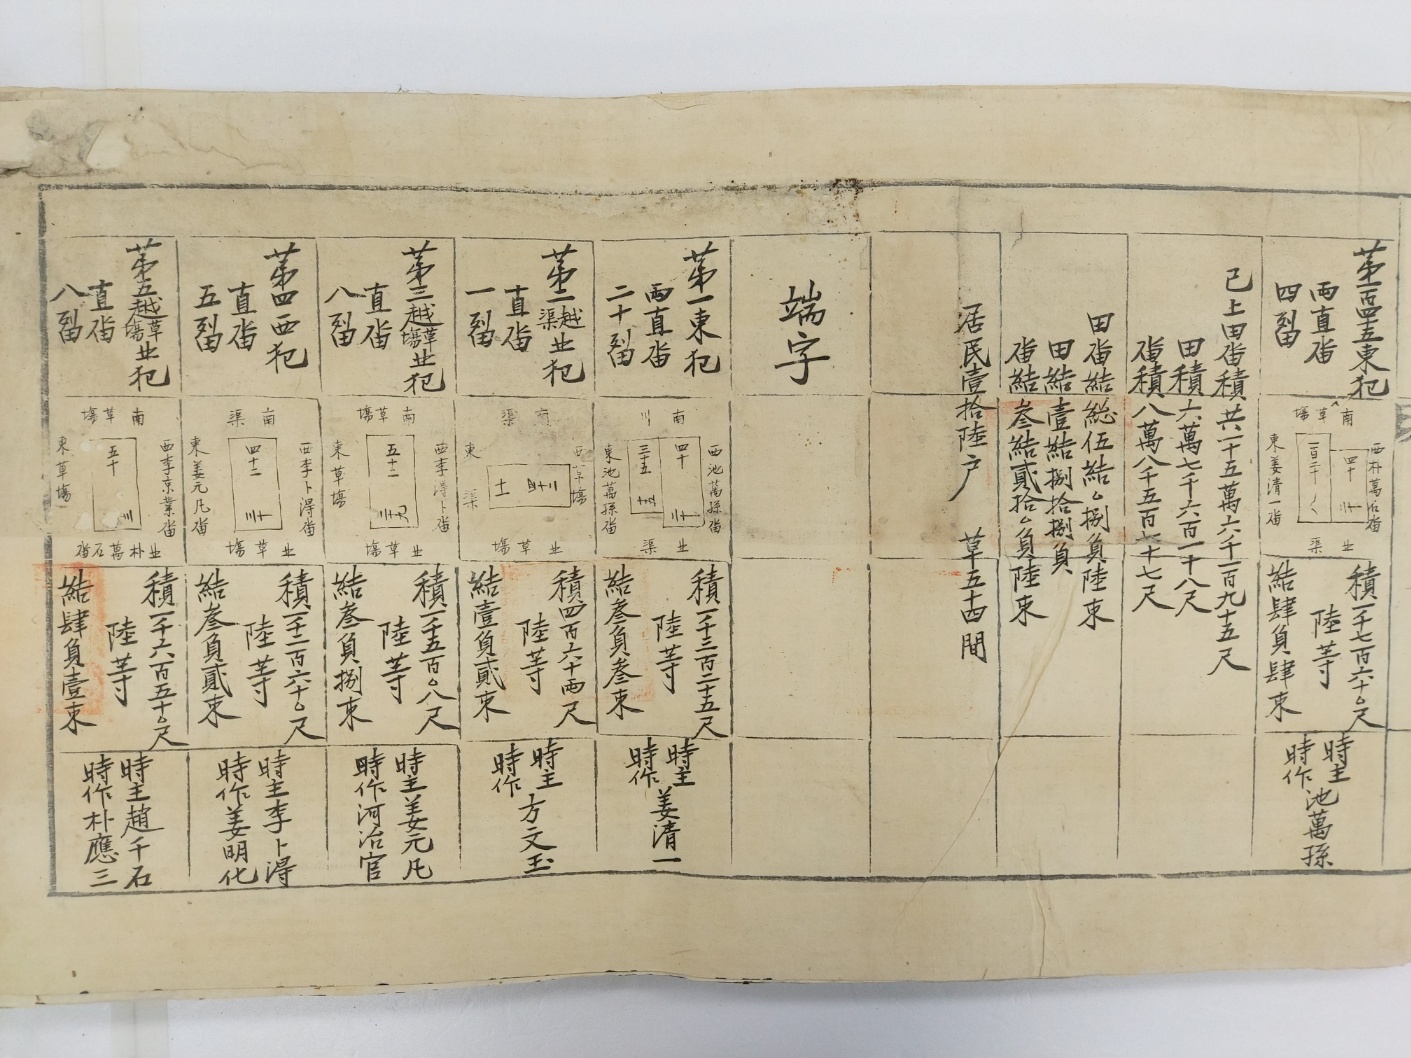 第一百四十五東犯
兩直畓
四㽝
南草場
東姜清一畓
西朴萬石畓
北渠
積一千七百六十〇尺
陸等
結肆負肆束
時主
時作
池萬孫
已上田畓積共一十五萬六千一百九十五尺
田積六萬七千六百一十八尺
畓積八萬八千五百七十七尺
田畓結総伍結〇捌負陸束
田結壹結捌拾捌負
畓結叁結貳拾〇負陸束
居民壹拾陸户
草五十四間
端字
第一東犯
兩直畓
二十㽝
南川
東池萬孫畓
西池萬孫畓
四十
三十五
北渠
積一千三百二十五尺
陸等
結叁負叁束
時主
時作
姜清一
第二越渠北犯
直畓
一㽝
南渠
東渠
西草場
北草場
積四百六十兩尺
陸等
結壹負貳束
時主
時作
方文玉
第三越草場北犯
直畓
八㽝
南草場
東草場
西李卜淂畓
五十二
二十九
北草場
積一千五百〇八尺
陸等
結叁負捌束
時主姜元凡
時作河治官
第四西犯
直畓
五㽝
南渠
東姜元凡畓
西李卜淂畓
四十二
三十
北草場
積一千二百六十〇尺
陸等
結叁負貳束
時主李卜淂
時作姜明化
第五越草場北犯
直畓
八㽝
南草場
東草場
西李京業畓
五十
北朴萬石畓
積一千六百五十〇尺
陸等
結肆負壹束
時主趙千石
時作朴應三